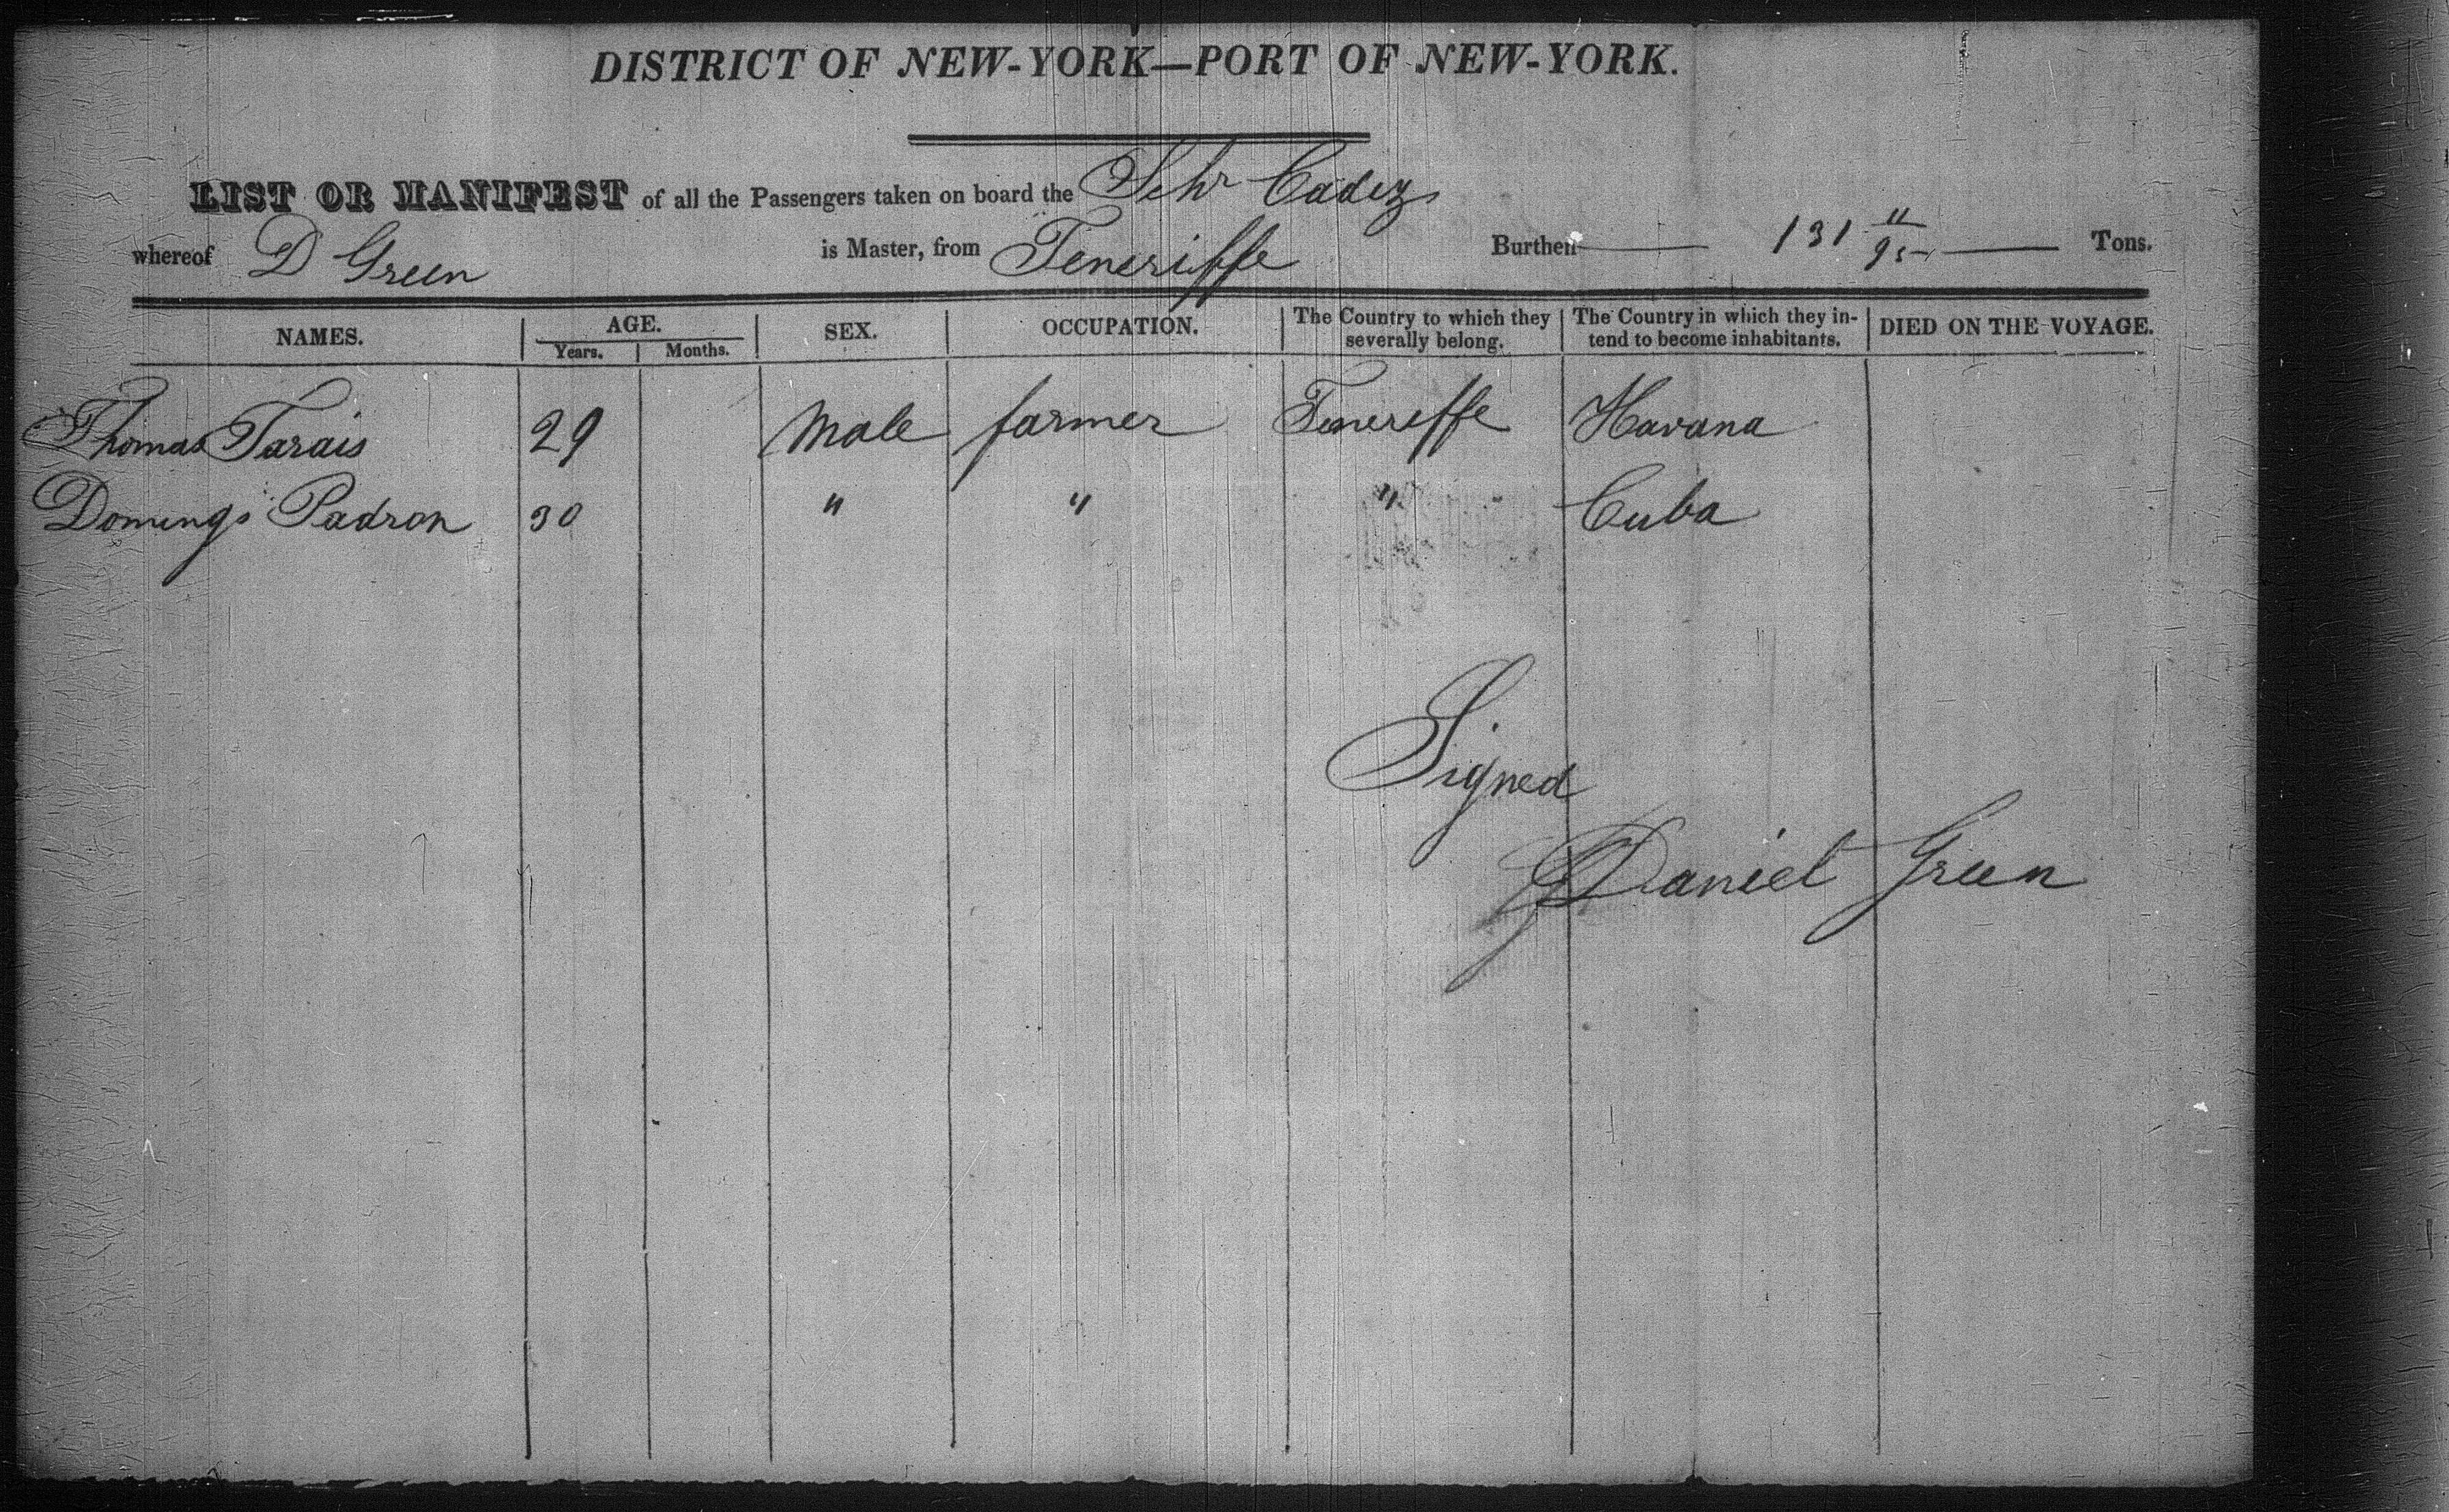 DISTRICT OF NEW-YORK—PORT OF NEW-YORK.
LIST OR MANIFEST of all the Passengers taken on board the Schr Cadiz
whereof D Green is Master, from Teneriffe Burthen 131 11/95 Tons.
NAMES. AGE. Years. Months. SEX. OCCUPATION. The Country to which they severally belong. The Country in which they intend to become inhabitants. DIED ON THE VOYAGE.
Thomas Tarais 29 Male farmer Teneriffe Havana
Domingo Padron 30 " " " Cuba
Signed
Daniel Green